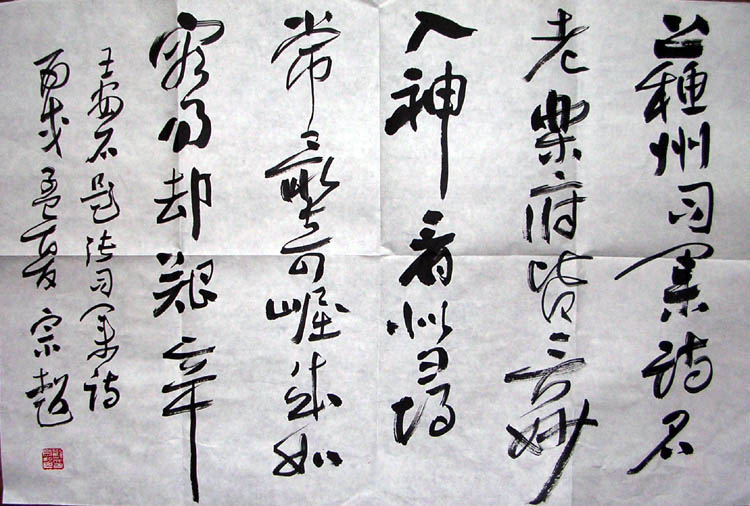 蘇州司業诗名
老樂府皆言妙
入神看似尋
常最奇崛成如
容易却艱辛
王安石题张司業诗
丙戌孟夏 宗超